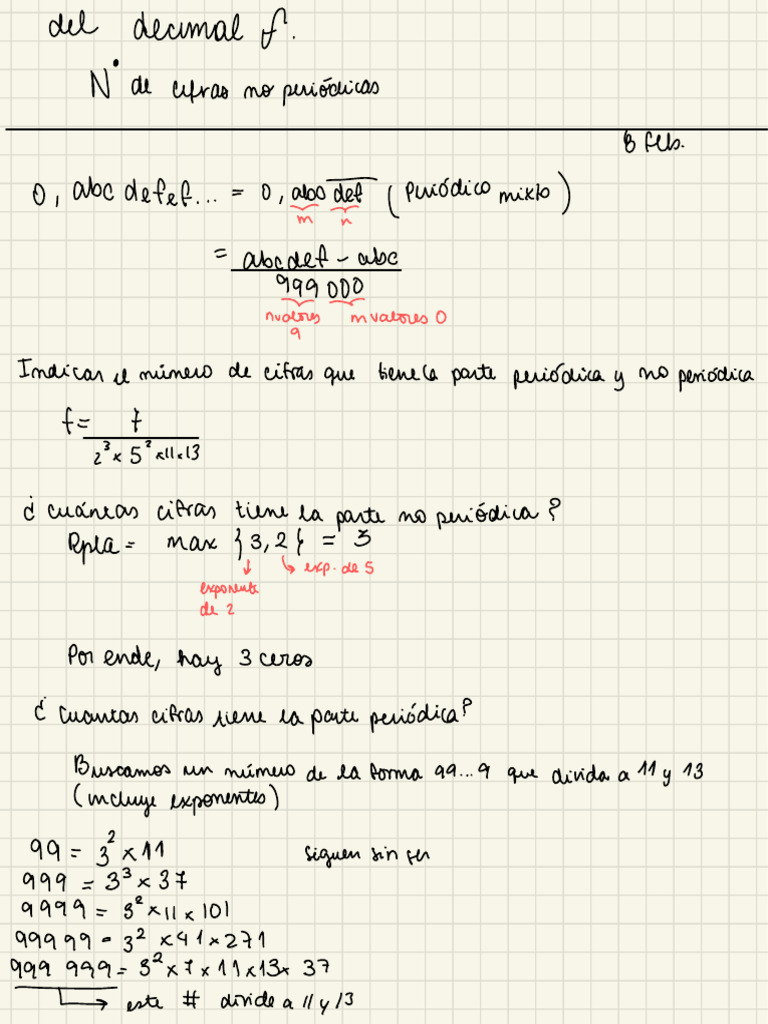 del decimal f.
N° de cifras no periódicas
8 feb.
0, abc defef... = 0, abc def (Periódico mixto)
m n
= abcdef - abc
999 000
n valores 9 m valores 0
Indicar el número de cifras que tiene la parte periódica y no periódica
f = 7
2^3 × 5^2 × 11 × 13
¿Cuántas cifras tiene la parte no periódica?
Rpta = max {3, 2} = 3
exponente de 2 exp. de 5
Por ende, hay 3 ceros
¿Cuantas cifras tiene la parte periódica?
Buscamos un número de la forma 99...9 que divida a 11 y 13
(incluye exponentes)
99 = 3^2 × 11 siguen sin ser
999 = 3^3 × 37
9999 = 3^2 × 11 × 101
99999 = 3^2 × 41 × 271
999 999 = 3^2 × 7 × 11 × 13 × 37
este # divide a 11 y 13